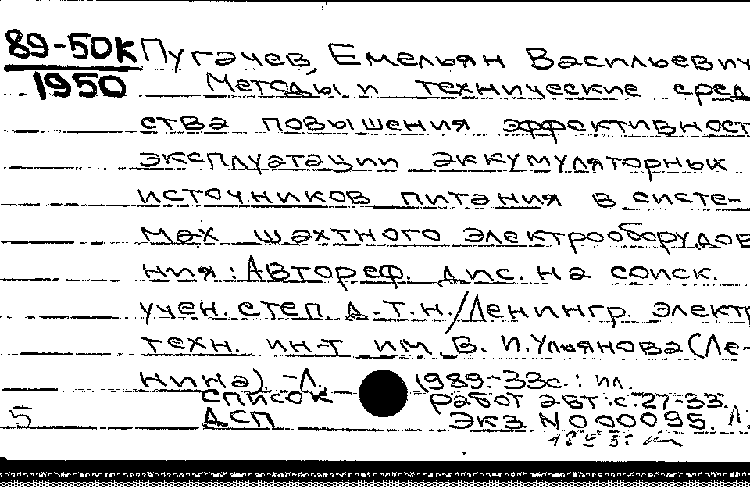 89-50К Пугачев, Емельян Васильевич
1950 Методы и технические сред
ства повышения эффективност
эксплуатации аккумуляторных
источников питания в систе-
мах шахтного электрооборудов
ния: Автореф. дис. на соиск.
учен. степ. д.т.н./Ленингр. электр
техн. ин-т им. В. И. Ульянова (Ле-
нина) -Л. 1989.-33с.: ил.
список работ авт.: с. 27-33.
5 ДСП экз N 000095. Л.